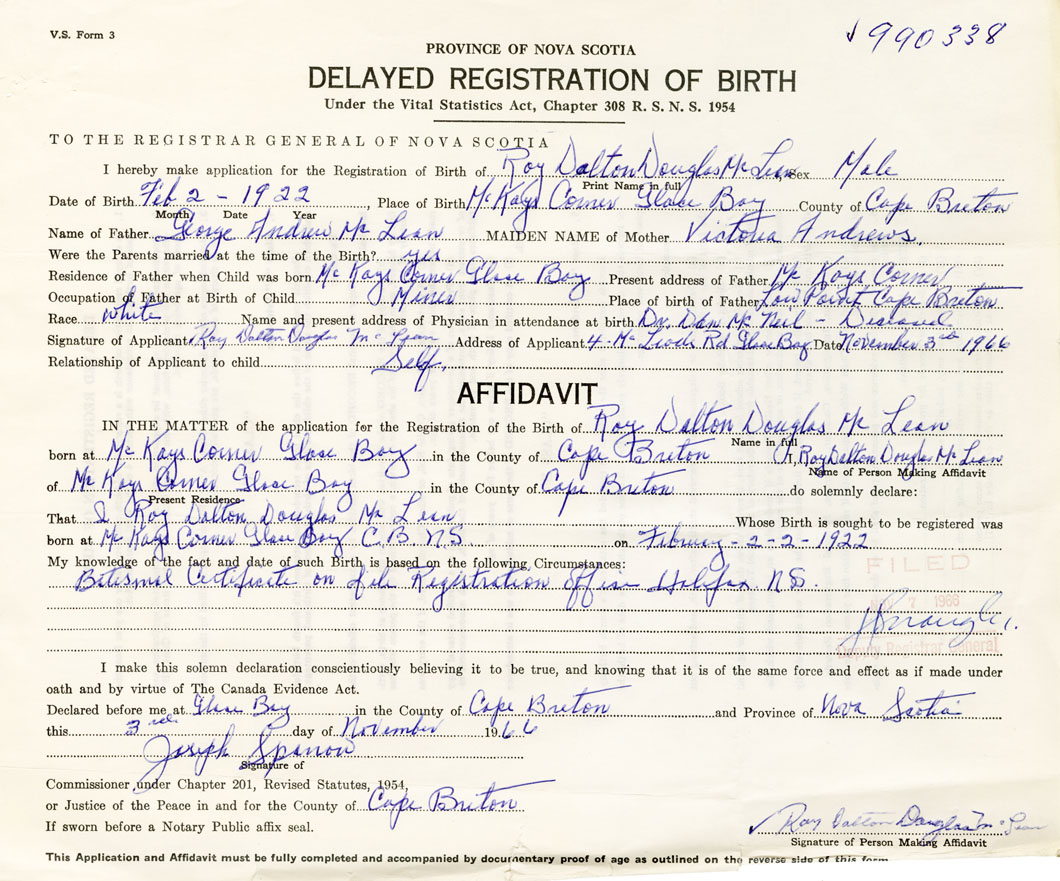 V.S. Form 3
990338
PROVINCE OF NOVA SCOTIA
DELAYED REGISTRATION OF BIRTH
Under the Vital Statistics Act, Chapter 308 R. S. N. S. 1954
TO THE REGISTRAR GENERAL OF NOVA SCOTIA
I hereby make application for the Registration of Birth of Roy Dalton Douglas Mc Lean, Sex Male
Print Name in full
Date of Birth Feb 2 - 1922, Place of Birth McKays Corner Glace Bay County of Cape Breton
Month Date Year
Name of Father George Andrew Mc Lean MAIDEN NAME of Mother Victoria Andrews.
Were the Parents married at the time of the Birth? yes
Residence of Father when Child was born Mc Kays Corner Glace Bay Present address of Father Mc Kays Corner
Occupation of Father at Birth of Child Miner Place of birth of Father Low Point Cape Breton
Race white Name and present address of Physician in attendance at birth Dr. Dan Mc Neil - Deceased
Signature of Applicant Roy Dalton Douglas McLean Address of Applicant 4 - Mc Leods Rd Glace Bay Date November 3rd 1966
Relationship of Applicant to child Self.
AFFIDAVIT
IN THE MATTER of the application for the Registration of the Birth of Roy Dalton Douglas Mc Lean
Name in full
born at Mc Kays Corner Glace Bay in the County of Cape Breton I, Roy Dalton Douglas Mc Lean
Name of Person Making Affidavit
of Mc Kays Corner Glace Bay in the County of Cape Breton do solemnly declare:
Present Residence
That I Roy Dalton Douglas Mc Lean Whose Birth is sought to be registered was
born at Mc Kays Corner Glace Bay C.B. N.S on February - 2 - 2 - 1922
My knowledge of the fact and date of such Birth is based on the following Circumstances:
Batesmal Certificate on file Registration office Halifax N.S.
FILED
7 1966
Deputy Registrar General
I make this solemn declaration conscientiously believing it to be true, and knowing that it is of the same force and effect as if made under
oath and by virtue of The Canada Evidence Act.
Declared before me at Glace Bay in the County of Cape Breton and Province of Nova Scotia
this 3rd day of November 1966
Joseph
Signature of
Commissioner under Chapter 201, Revised Statutes, 1954,
or Justice of the Peace in and for the County of Cape Breton
If sworn before a Notary Public affix seal.
Roy Dalton Douglas Mc Lean
Signature of Person Making Affidavit
This Application and Affidavit must be fully completed and accompanied by documentary proof of age as outlined on the reverse side of this form